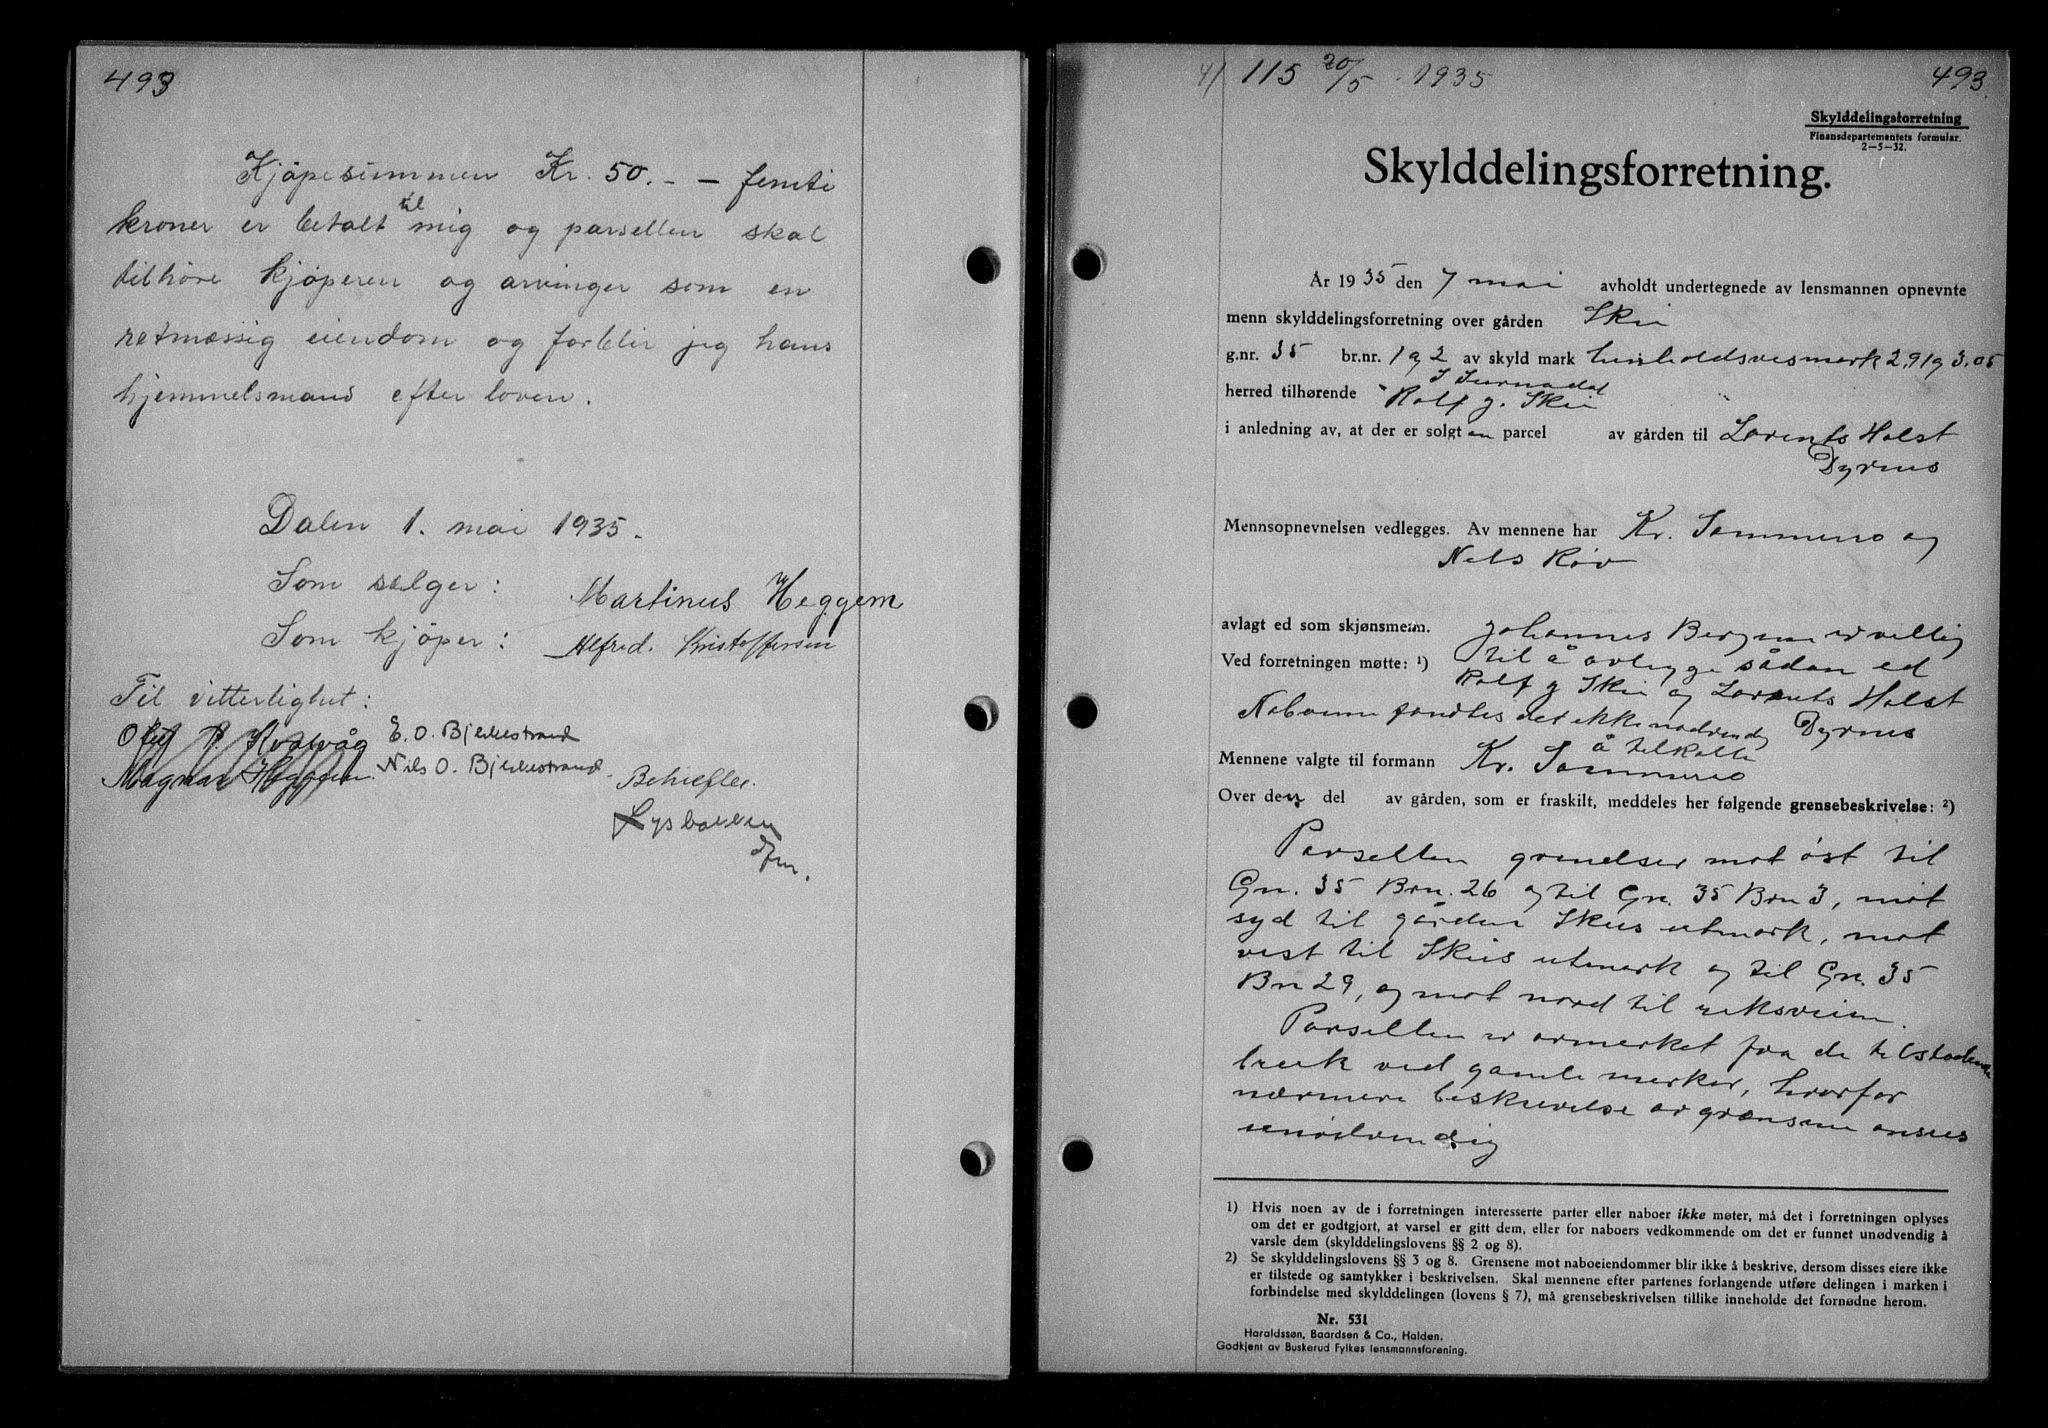 493
Kjøpesummen Kr. 50. - - femti
kroner er betalt til mig og parsellen skal
tilhøre kjøperen og arvinger som en
retmæssig eiendom og forblir jeg hans
hjemmelsmand efter loven.
Dalen 1. mai 1935.
Som sælger: Martinus Heggem
Som kjøper: Alfred Kristoffersen
Til vitterlighet:
P. Kvalvåg E. O. Bjerkestrand
Magnar Heggem Nils O. Bjerkestrand.
4/ 115 20/5 1935 493.
Skylddelingsforretning
Finansdepartementets formular.
2-5-32.
Skylddelingsforretning.
År 1935 den 7 mai avholdt undertegnede av lensmannen opnevnte
menn skylddelingsforretning over gården Skei
g.nr. 35 br.nr. 1 og 2 av skyld mark henholdsvis mark 2,91 og 3.05
i Surnadal
herred tilhørende Rolf J. Skei
i anledning av, at der er solgt en parcel av gården til Lorents Holst
Dyrnes
Mennsopnevnelsen vedlegges. Av mennene har Kr. Sommero og
Nels Røv
avlagt ed som skjønsmenn. Johannes Bergem er villig
Ved forretningen møtte: ¹) til å avlegge sådan ed
Rolf J Skei og Lorents Holst
Naboerne fandtes det ikke nødvendig Dyrnes
å tilkalle
Mennene valgte til formann Kr. Sommero
Over den del av gården, som er fraskilt, meddeles her følgende grensebeskrivelse: ²)
Parsellen grendser mot øst til
Gn. 35 Brn. 26 og til Gn. 35 Brn 3, mot
syd til gården Skeis utmark, mot
vest til Skeis utmark og til Gn. 35
Bn 29, og mot nord til riksveien.
Parsellen er avmerket fra de tilstøtende
bruk ved gamle merker, hvorfor
nærmere beskrivelse av grensene ansees
unødvendig
1) Hvis noen av de i forretningen interesserte parter eller naboer ikke møter, må det i forretningen oplyses
om det er godtgjort, at varsel er gitt dem, eller for naboers vedkommende om det er funnet unødvendig å
varsle dem (skylddelingslovens §§ 2 og 8).
2) Se skylddelingslovens §§ 3 og 8. Grensene mot naboeiendommer blir ikke å beskrive, dersom disses eiere ikke
er tilstede og samtykker i beskrivelsen. Skal mennene efter partenes forlangende utføre delingen i marken i
forbindelse med skylddelingen (lovens § 7), må grensebeskrivelsen tillike inneholde det fornødne herom.
Nr. 531
Haraldssøn, Baardsen & Co., Halden.
Godkjent av Buskerud Fylkes lensmannsforening.